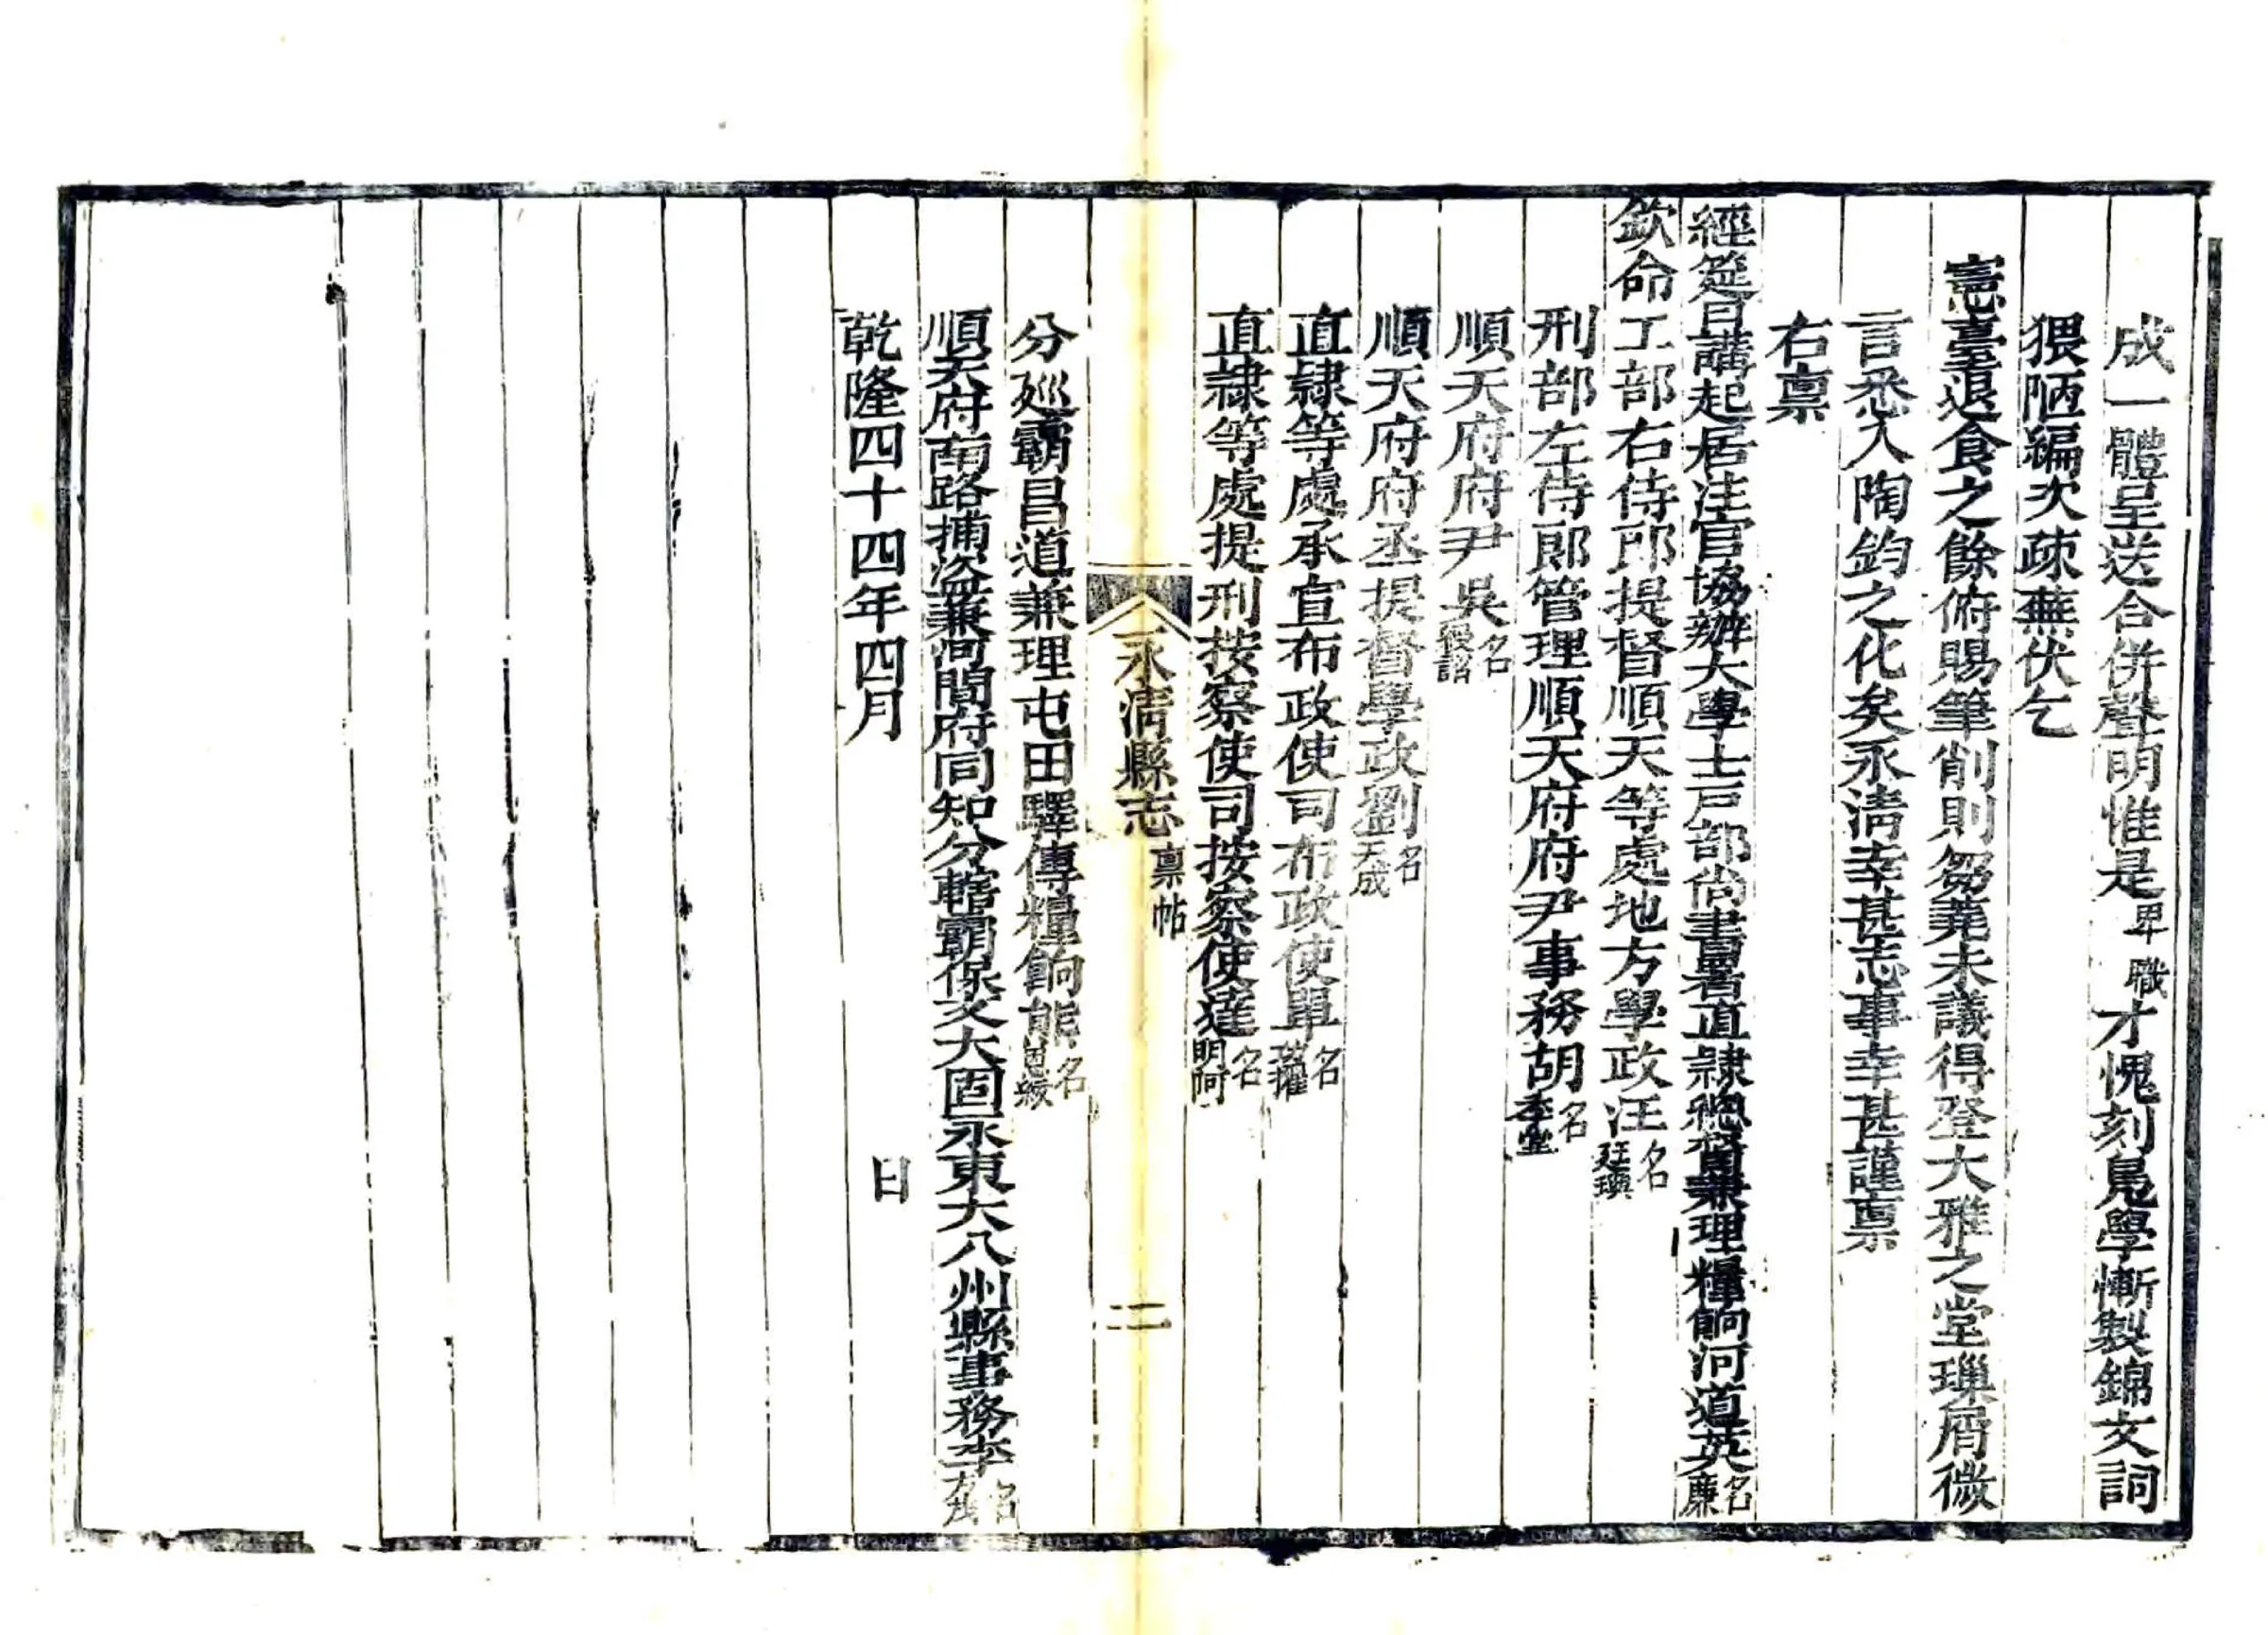 成一體呈送合併聲明惟是卑職才愧刻鳬學慚製錦文詞
猥陋編次疎蕪伏乞
憲臺退食之餘俯賜筆削則芻蕘末議得登大雅之堂璅屑微
言悉入陶鈞之化矣永淸幸甚志事幸甚謹禀
右禀
經筵日講起居注官協辦大學士戸部尚書署直隷總督兼理糧餉河道英名廉
欽命工部右侍郎提督順天等處地方學政汪名廷璵
刑部左侍郎管理順天府府尹事務胡名季堂
順天府府尹吳名
順天府府丞提督學政劉名天成
直隷等處承宣布政使司布政使單名
直隷等處提刑按察使司按察使達名明阿
永淸縣志 禀帖 二
分廵霸昌道兼理屯田驛傳糧餉熊名恩紱
順天府南路捕盗兼河間府同知分轄霸保文大固永東大八州縣事務李名
乾隆四十四年四月 日